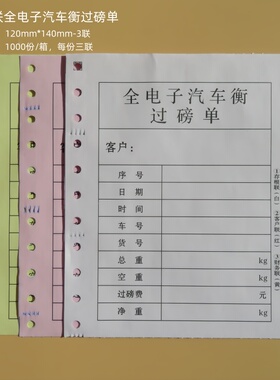 联全电子汽车衡过磅单
120mm*140mm-3联
1000份/箱，每份三联
全电子汽车衡
过磅单
客户：
序 号
日 期
时 间
车 号
货 号
总 重 kg
空 重 kg
过磅费 元
净 重 kg
1存根联(白) 2客户联(红) 3财务联(黄)